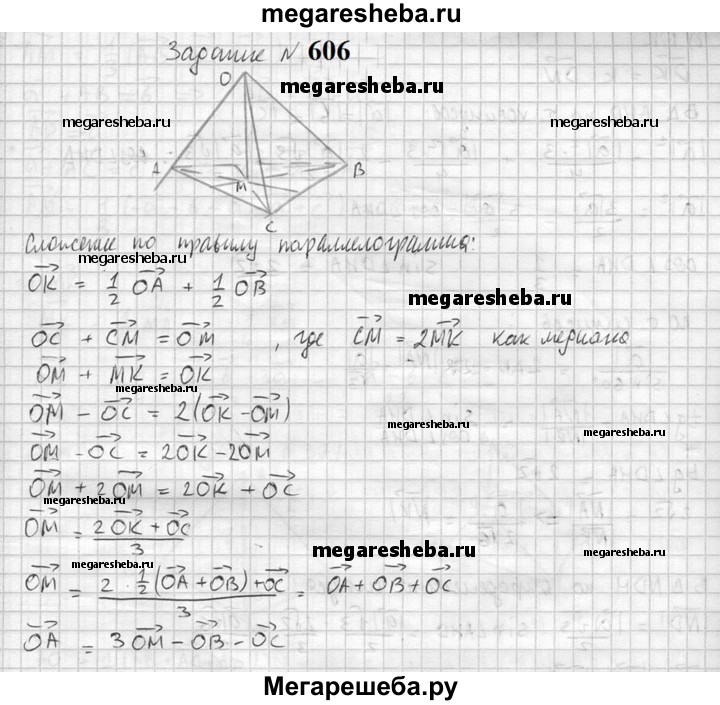 megaresheba.ru
Задание N 606
O
megaresheba.ru
megaresheba.ru
megaresheba.ru
A
B
M
C
Сложение по правилу параллелограмма:
megaresheba.ru
OK = 1/2 OA + 1/2 OB
megaresheba.ru
OC + CM = OM , где CM = 2MK как медиана
OM + MK = OK
megaresheba.ru
OM - OC = 2(OK - OM)
megaresheba.ru
OM - OC = 2OK - 2OM
OM + 2OM = 2OK + OC
megaresheba.ru
OM = 2OK + OC / 3
megaresheba.ru
megaresheba.ru
OM = 2 · 1/2 (OA + OB) + OC / 3 = OA + OB + OC
megaresheba.ru
OA = 3OM - OB - OC
Мегарешеба.ру